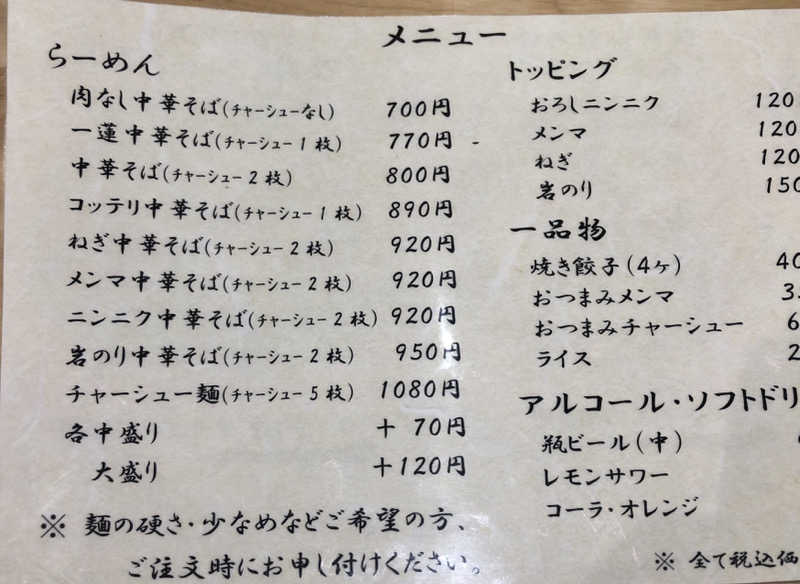 メニュー
らーめん
肉なし中華そば(チャーシューなし) 700円
一蓮中華そば(チャーシュー1枚) 770円
中華そば(チャーシュー2枚) 800円
コッテリ中華そば(チャーシュー1枚) 890円
ねぎ中華そば(チャーシュー2枚) 920円
メンマ中華そば(チャーシュー2枚) 920円
ニンニク中華そば(チャーシュー2枚) 920円
岩のり中華そば(チャーシュー2枚) 950円
チャーシュー麺(チャーシュー5枚) 1080円
各中盛り +70円
大盛り +120円
※麺の硬さ・少なめなどご希望の方、
ご注文時にお申し付けください。
トッピング
おろしニンニク 120
メンマ 120
ねぎ 120
岩のり 150
一品物
焼き餃子(4ヶ) 40
おつまみメンマ 3
おつまみチャーシュー 6
ライス 2
アルコール・ソフトドリ
瓶ビール(中)
レモンサワー
コーラ・オレンジ
※全て税込価